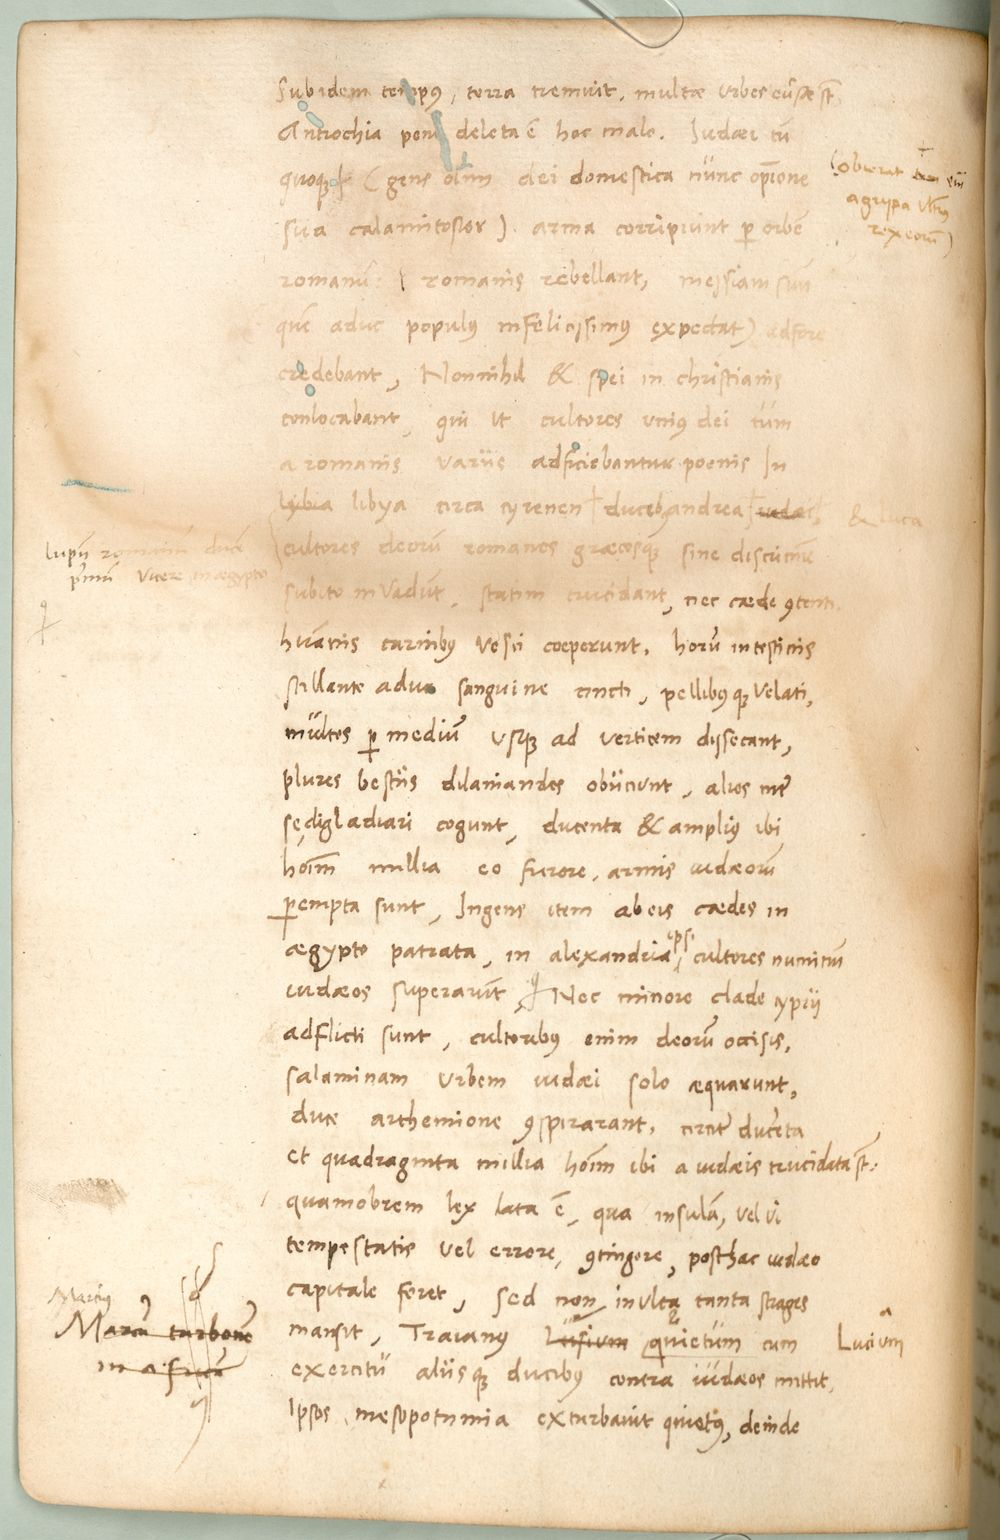 Sub idem tempꝯ, terra tremuit, multæ urbes eũsæ sʈ
Antiochia pene deleta ẽ hoc malo. Iudæi tũ
quoqꝫ (gens olim dei domestica nũnc opĩone
sua calamitosior) arma corripiunt ꝑ orbẽ
romanũ: romanis rebellant, messiam suũ
quẽ aduc populꝯ infelicissimꝯ expectat) adfore
credebant, Nonnihil & spei in christianis
conlocabant, qui ut cultores uniꝯ dei tum
a romanis variis adficiebantur poenis In
lybia libya circa cyrenen duce andrea iudæi,
cultores deorũ romanos græcosqꝫ sine discrimĩe
subito invadũt, statim trucidant, nec cæde ꝯtenti
humanis carnibꝯ vesci coeperunt, horũ intestinis
stillante aduc sanguine cincti, pellibꝯqꝫ velati,
multos ꝑ mediũ usqꝫ ad verticem dissecant,
plures bestiis dilaniandos obiiciunt, alios inter
se digladiari cogunt, ducenta & amplius ibi
hoĩm millia eo furore, armis iudæorũ
ꝑempta sunt, Ingens item ab eis cædes in
ægypto patrata, in alexandria ipsi cultores numinũ
iudæos superarũt, Nec minore clade cyprii
adflicti sunt, cultoribꝯ enim deorũ occisis,
salaminam urbem iudæi solo æquarunt,
duce arthemione ꝯspirarant, circiter ducẽta
et quadraginta millia hoĩm ibi a iudæis trucidata sʈ.
quamobrem lex lata ẽ, qua insulã, vel vi
tempestatis vel errore, ꝯtingere, posthac iudæo
capitale foret, Sed non inulta tanta strages
mansit, Traianꝯ Lusium quietum cum
exercitũ aliisqꝫ ducibꝯ contra iudæos mittit,
Ipsos mesopotamia exturbavit quietꝯ, deinde
(obierat
agrypa ultimꝯ
rex eorũ)
& luca
Lupũ romanũ ducẽ
primũ vicere in ægypto
Marciꝯ
Marcũ turbonẽ
Lucium